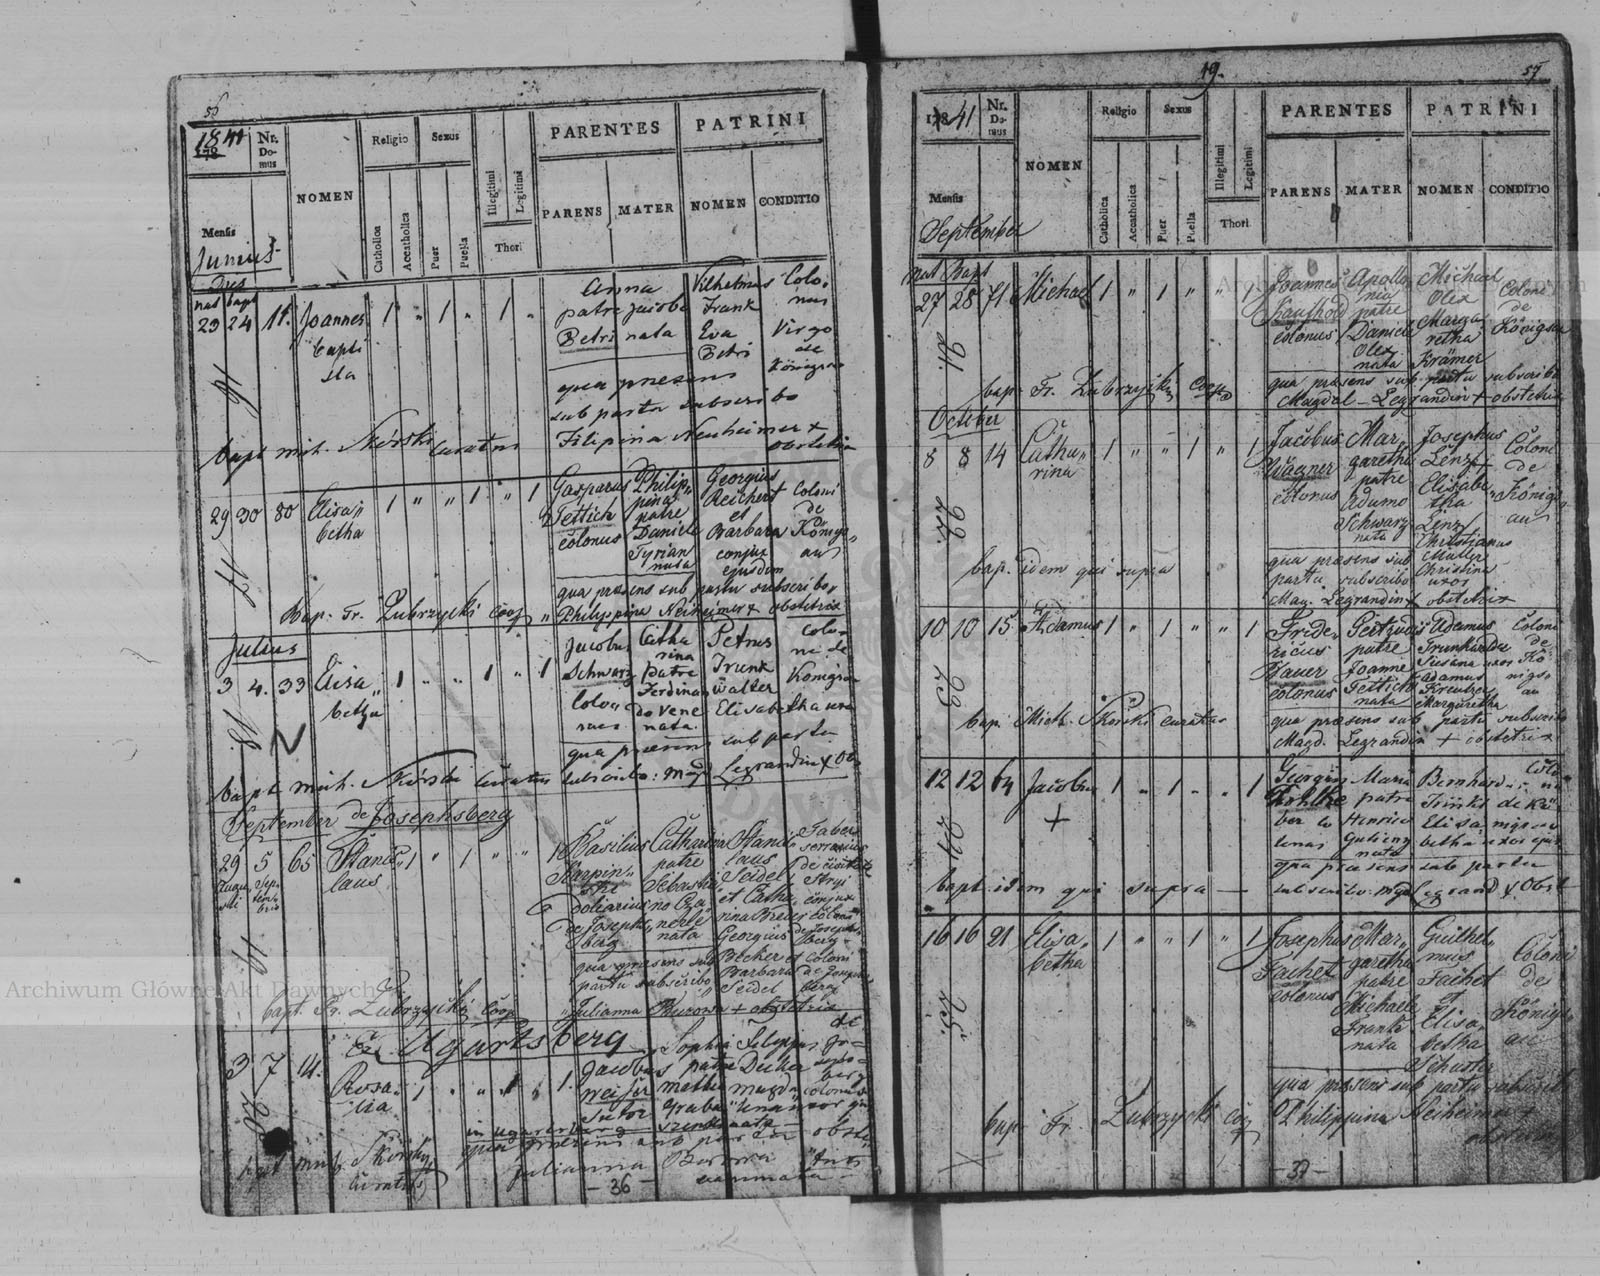 56
1841
Nr. Domus
NOMEN
Religio
Sexus
PARENTES
PATRINI
Mensis
Catholica
Accatholica
Puer
Puella
Illegitimi
Legitimi
Thori
PARENS
MATER
NOMEN
CONDITIO
Junius
Dies
nat bapt
23 24 11. Joannes 1 " 1 " 1 "
bapti
sta
Anna
patre Jacobo
Petri nata
Vilhelmus
Frank
Eva
Petri
Colo-
nus
Virgo
de
Königsau
16
qua praesens
sub partu subscribo
Filipina Neuheimer +
obstetrix
bapt mich. Skórski curatus
29 30 80 Elisa"
betha
1 " " 1 " 1
Gasparus
Tettich
colonus
Philip"
pina
patre
Daniele
Tyrian
nata
Georgius
Reichert
et
Barbara
conjux
ejusdem
Coloni
de
Königs"
au
17
qua praesens sub partu subscribo
Philippina Neiheimer + obstetrix
Bap. Fr. Zubrzycki Coop
Julius
3 4. 33 Elisa"
betha
1 " " 1 " 1
Jacobus
Schwarz
Colo"
nus
Catha
rina
patre
Ferdinan
do Vene
nata
Petrus
Trunk
Walter
Elisabetha uxor
colo-
ni de
Königsau
18
qua praesens sub partu
subscribo: Magd Legrandin + Obs
bapt mich. Skórski curatus
September de Josephsberg
29 5 65 Stanis"
laus
1 " 1 " " 1
Augu
sti
Sep-
tem
bris
Basilius
Karpin"
ski
doliarius
de Joseph"
berg
Catharina
patre
Sebastia
no Cza
nerle
nata
Stanis"
laus
Seidel
et Catha"
rina Breues
Georgius
Becher et
Barbara
Seidel
Faber
serrarius
de civitate
Stryi
conjux
coloni
de Joseph"
berg
Coloni
de Josephs
berg
19
qua praesens sub
partu subscribo
Julianna Burowa + obstetrix
bapt. Fr. Zubrzycki Coop
Ex Ugartsberg
3 7 14. Rosa"
lia
1 " " 1 " 1.
Jacobus
Weiser
Sutor
in ugartsberg
Sophia
patre
Mathia
Graba
nata
Filippus
Decker
Magda"
lena uxor ejus
de
Jo-
sephs-
berg
colonus
20
qua praesens sub partu obste
Julianna Burowa
bapt mich. Skórsky
curatus
- 36 -
19.
57
1841
Nr. Domus
NOMEN
Religio
Sexus
PARENTES
PATRINI
Mensis
Catholica
Accatholica
Puer
Puella
Illegitimi
Legitimi
Thori
PARENS
MATER
NOMEN
CONDITIO
September
nat Bapt
27 28 71 Michael 1 " 1 " " 1
Joannes
Kaufhold
colonus
Apollo
nia
patre
Daniele
Olex
nata
Michael
Olex
Marga
retha
Krämer
Coloni
de
Königsau
21.
qua praesens sub partu subscribo
Magdal- Legrandin + obstetrix
bap. Fr. Zubrzycki Coop
October
8 8 14 Catha"
rina
1 " " 1 " 1
Jacobus
Wagner
colonus
Mar"
garetha
patre
Adamo
Schwarz
nata
Josephus
Lenz
Elisabe"
tha
Lenz
Christianus
Muller
Christina
uxor
Coloni
de
Königs"
au
22.
qua praesens sub
partu subscribo
Mag. Legrandin + obstetrix
bap. idem qui supra
10 10 15 Adamus 1 " 1 " " 1
Fride"
ricus
Bauer
colonus
patre
Joanne
Tettich
nata
Adamus
Susana uxor
Adamus
Kreutzer
Margaretha
Coloni
de
Kö-
nigs"
au
23
qua praesens sub partu subscribo
Magd. Legrandin + obstetrix
bap. Mich. Skorski curatus
12 12 64 Jacobus 1 " 1 " " 1
+
Georgius
Maria
patre
Henrico
nata
Bernhard
Elisa
betha uxor ejus
Colo-
ni
de Kö
nigsau
24
qua praesens sub partu
subscribo: Mgd Legrand + Obst
bapt: idem qui supra —
16 16 21 Elisa"
betha
1 " " 1 " 1
Josephus
Fachet
colonus
Mar"
garetha
patre
Michaele
Franks
nata
Guilhel"
mus
Fachet
et
Elisa"
betha
Schuster
Coloni
de
Königs"
au
25.
qua praesens sub partu subscribo
Philippina Neiheimer +
obstetrix
bap. Fr. Zubrzycki Coop
- 37 -
Archiwum Główne Akt Dawnych